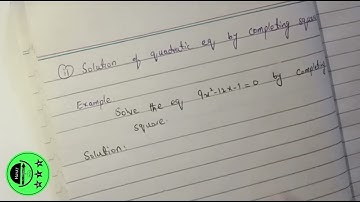 (ii) Solution of quadratic eq by completing square
Example
Solve the eq 9x²-12x-1=0 by completing
square.
Solution: